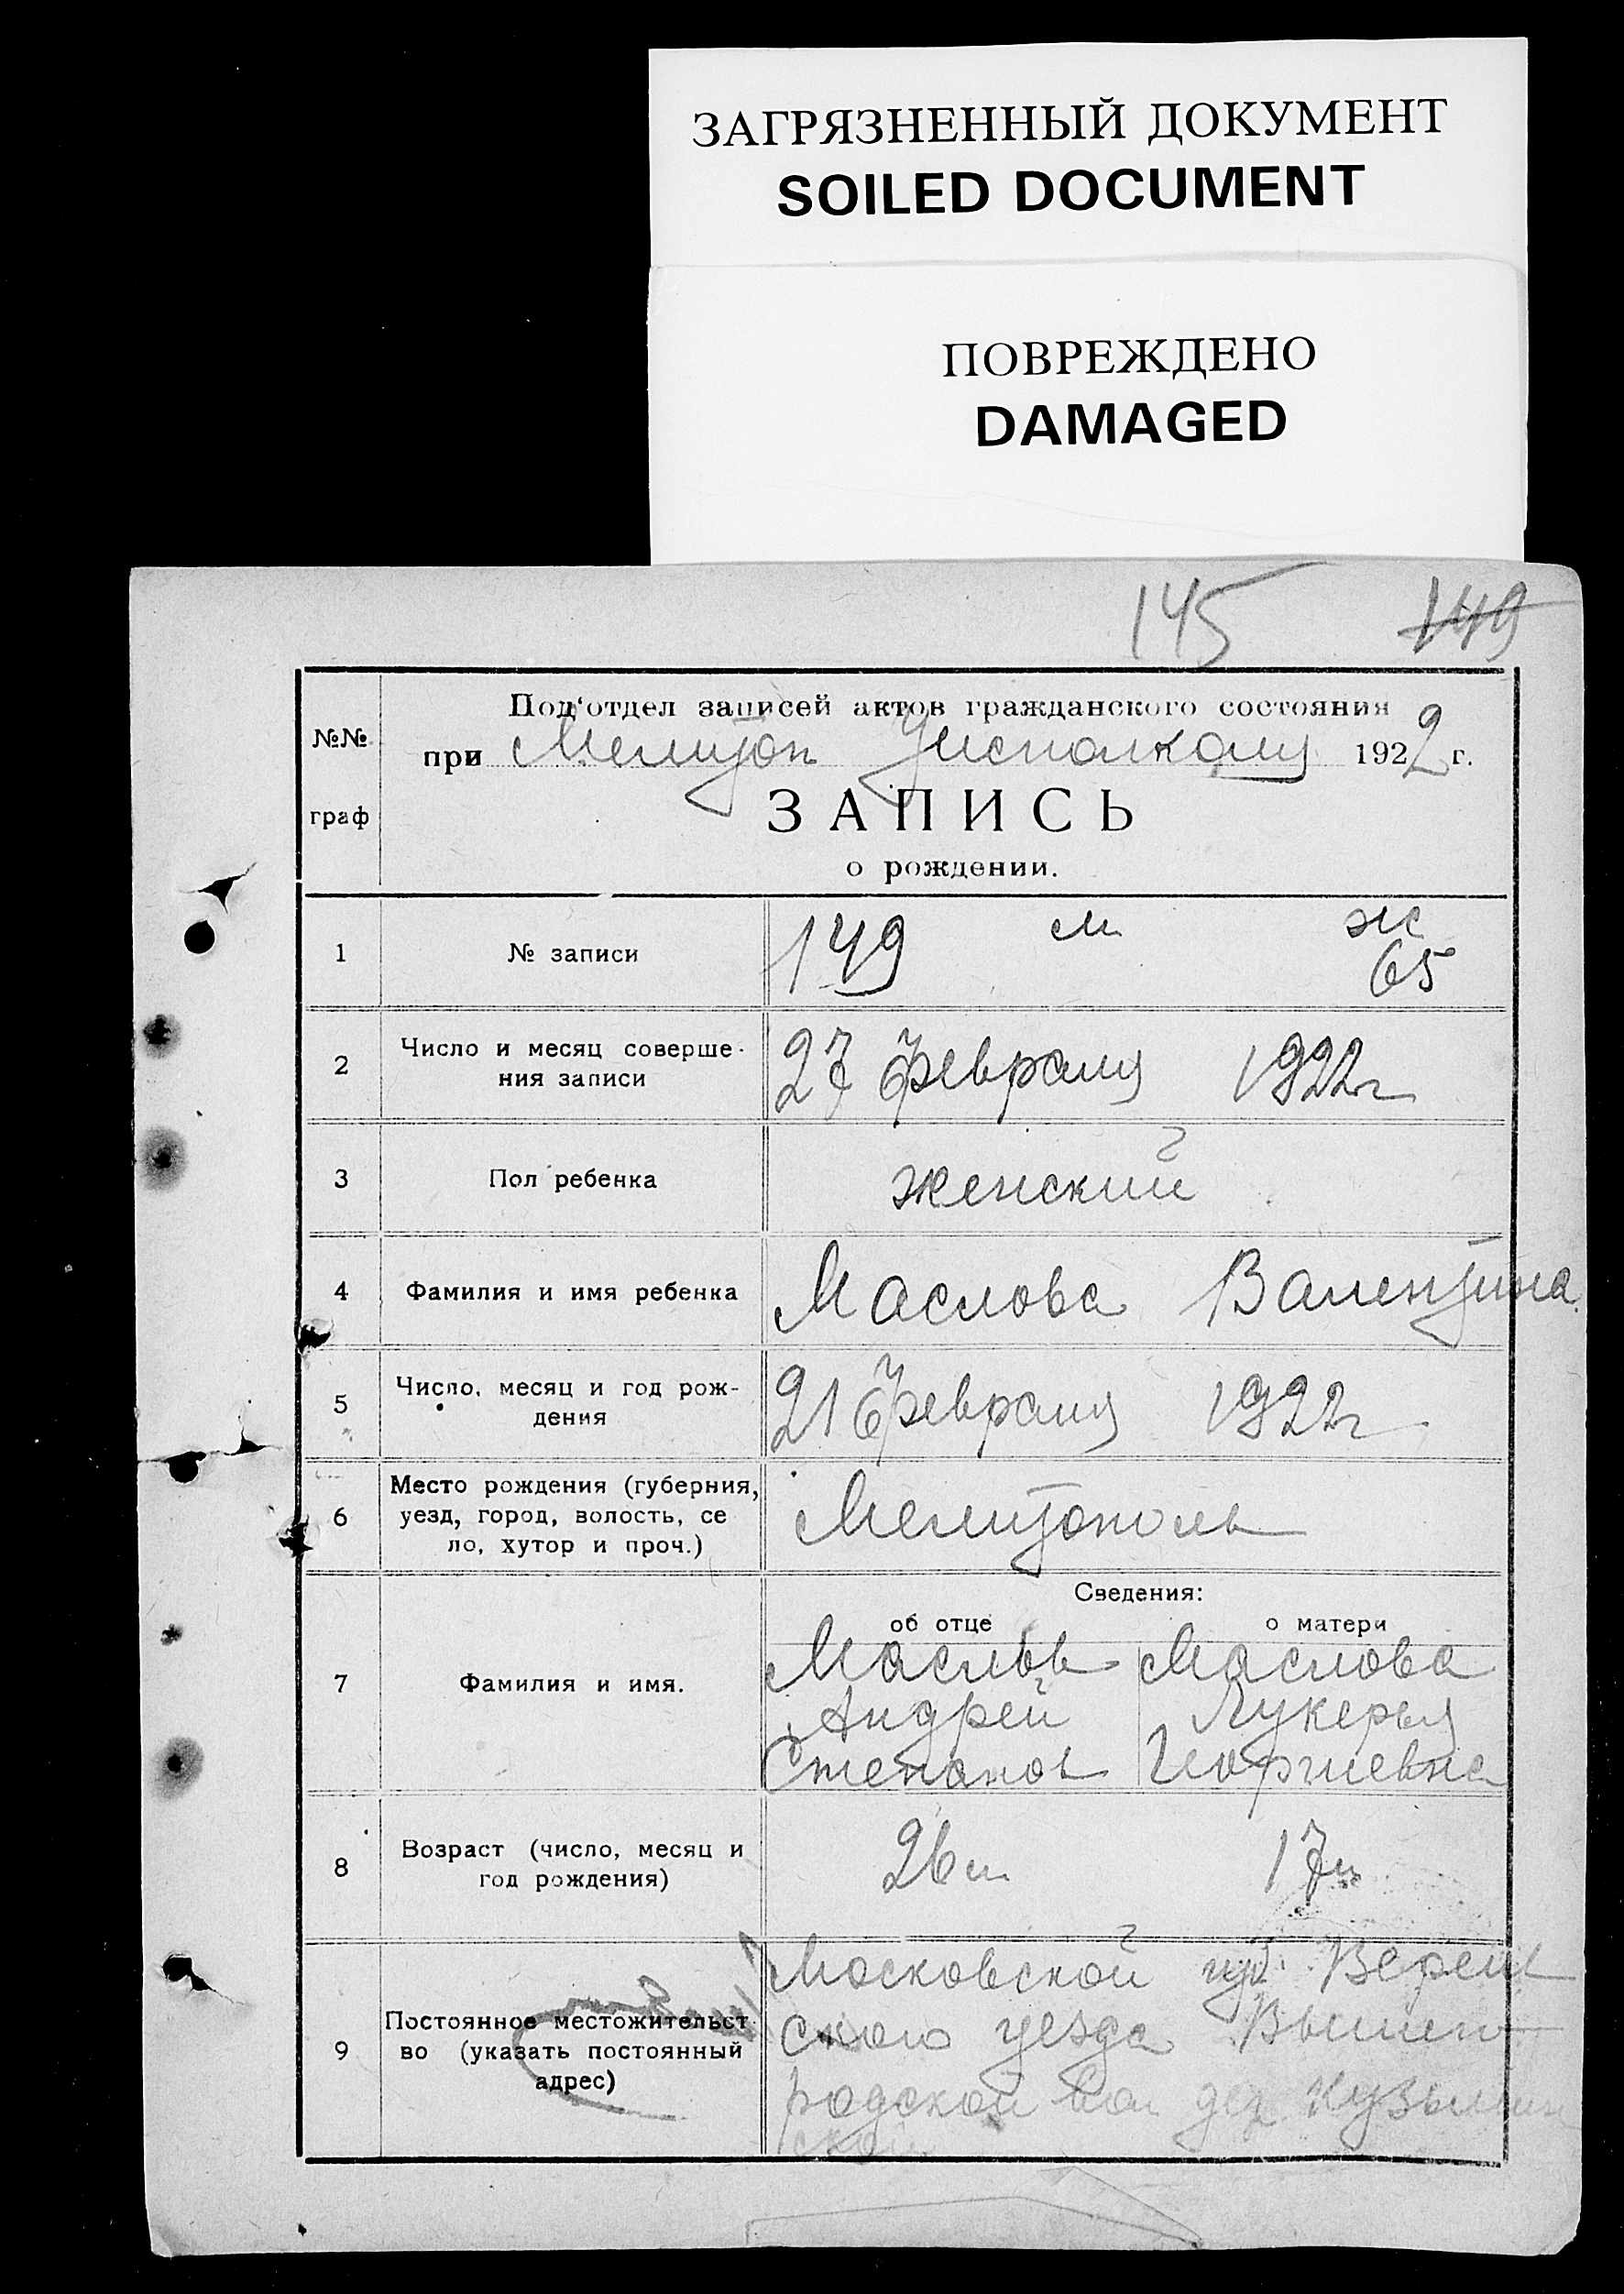 ЗАГРЯЗНЕННЫЙ ДОКУМЕНТ
SOILED DOCUMENT
ПОВРЕЖДЕНО
DAMAGED
145 149
Под'отдел записей актов гражданского состояния
№№ при Мелитоп Уисполкому 1922 г.
граф ЗАПИСЬ
о рождении.
1 № записи 149 м ж
65
2 Число и месяц соверше-
ния записи 27 февраля 1922 г
3 Пол ребенка женский
4 Фамилия и имя ребенка Маслова Валентина
5 Число, месяц и год рож-
дения 21 февраля 1922 г
6 Место рождения (губерния,
уезд, город, волость, се
ло, хутор и проч.) Мелитополь
Сведения:
об отце о матери
7 Фамилия и имя. Маслов Маслова
Андрей Лукерья
Степанов Георгиевна
8 Возраст (число, месяц и
год рождения) 26 л 17 л
9 Постоянное местожительст
во (указать постоянный
адрес)
Московской губ. Верей
ского уезда Вышего
родской вол дер Кузьмин
ской